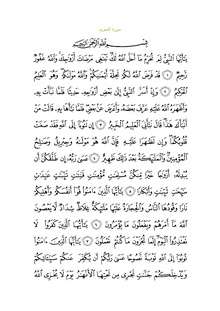 سورة التحريم
بِسْمِ ٱللَّهِ ٱلرَّحْمَٰنِ ٱلرَّحِيمِ
يَٰٓأَيُّهَا ٱلنَّبِيُّ لِمَ تُحَرِّمُ مَآ أَحَلَّ ٱللَّهُ لَكَ تَبْتَغِي مَرْضَاتَ أَزْوَٰجِكَ وَٱللَّهُ غَفُورٌ
رَّحِيمٌ ١ قَدْ فَرَضَ ٱللَّهُ لَكُمْ تَحِلَّةَ أَيْمَٰنِكُمْ وَٱللَّهُ مَوْلَىٰكُمْ وَهُوَ ٱلْعَلِيمُ
ٱلْحَكِيمُ ٢ وَإِذْ أَسَرَّ ٱلنَّبِيُّ إِلَىٰ بَعْضِ أَزْوَٰجِهِۦ حَدِيثًا فَلَمَّا نَبَّأَتْ بِهِۦ
وَأَظْهَرَهُ ٱللَّهُ عَلَيْهِ عَرَّفَ بَعْضَهُۥ وَأَعْرَضَ عَنۢ بَعْضٍ فَلَمَّا نَبَّأَهَا بِهِۦ قَالَتْ مَنْ
أَنۢبَأَكَ هَٰذَا قَالَ نَبَّأَنِيَ ٱلْعَلِيمُ ٱلْخَبِيرُ ٣ إِن تَتُوبَآ إِلَى ٱللَّهِ فَقَدْ صَغَتْ
قُلُوبُكُمَا وَإِن تَظَٰهَرَا عَلَيْهِ فَإِنَّ ٱللَّهَ هُوَ مَوْلَىٰهُ وَجِبْرِيلُ وَصَٰلِحُ
ٱلْمُؤْمِنِينَ وَٱلْمَلَٰٓئِكَةُ بَعْدَ ذَٰلِكَ ظَهِيرٌ ٤ عَسَىٰ رَبُّهُۥٓ إِن طَلَّقَكُنَّ أَن
يُبْدِلَهُۥٓ أَزْوَٰجًا خَيْرًا مِّنكُنَّ مُسْلِمَٰتٍ مُّؤْمِنَٰتٍ قَٰنِتَٰتٍ تَٰٓئِبَٰتٍ عَٰبِدَٰتٍ
سَٰٓئِحَٰتٍ ثَيِّبَٰتٍ وَأَبْكَارًا ٥ يَٰٓأَيُّهَا ٱلَّذِينَ ءَامَنُوا۟ قُوٓا۟ أَنفُسَكُمْ وَأَهْلِيكُمْ
نَارًا وَقُودُهَا ٱلنَّاسُ وَٱلْحِجَارَةُ عَلَيْهَا مَلَٰٓئِكَةٌ غِلَاظٌ شِدَادٌ لَّا يَعْصُونَ
ٱللَّهَ مَآ أَمَرَهُمْ وَيَفْعَلُونَ مَا يُؤْمَرُونَ ٦ يَٰٓأَيُّهَا ٱلَّذِينَ كَفَرُوا۟ لَا
تَعْتَذِرُوا۟ ٱلْيَوْمَ إِنَّمَا تُجْزَوْنَ مَا كُنتُمْ تَعْمَلُونَ ٧ يَٰٓأَيُّهَا ٱلَّذِينَ ءَامَنُوا۟
تُوبُوٓا۟ إِلَى ٱللَّهِ تَوْبَةً نَّصُوحًا عَسَىٰ رَبُّكُمْ أَن يُكَفِّرَ عَنكُمْ سَيِّـَٔاتِكُمْ
وَيُدْخِلَكُمْ جَنَّٰتٍ تَجْرِي مِن تَحْتِهَا ٱلْأَنْهَٰرُ يَوْمَ لَا يُخْزِي ٱللَّهُ